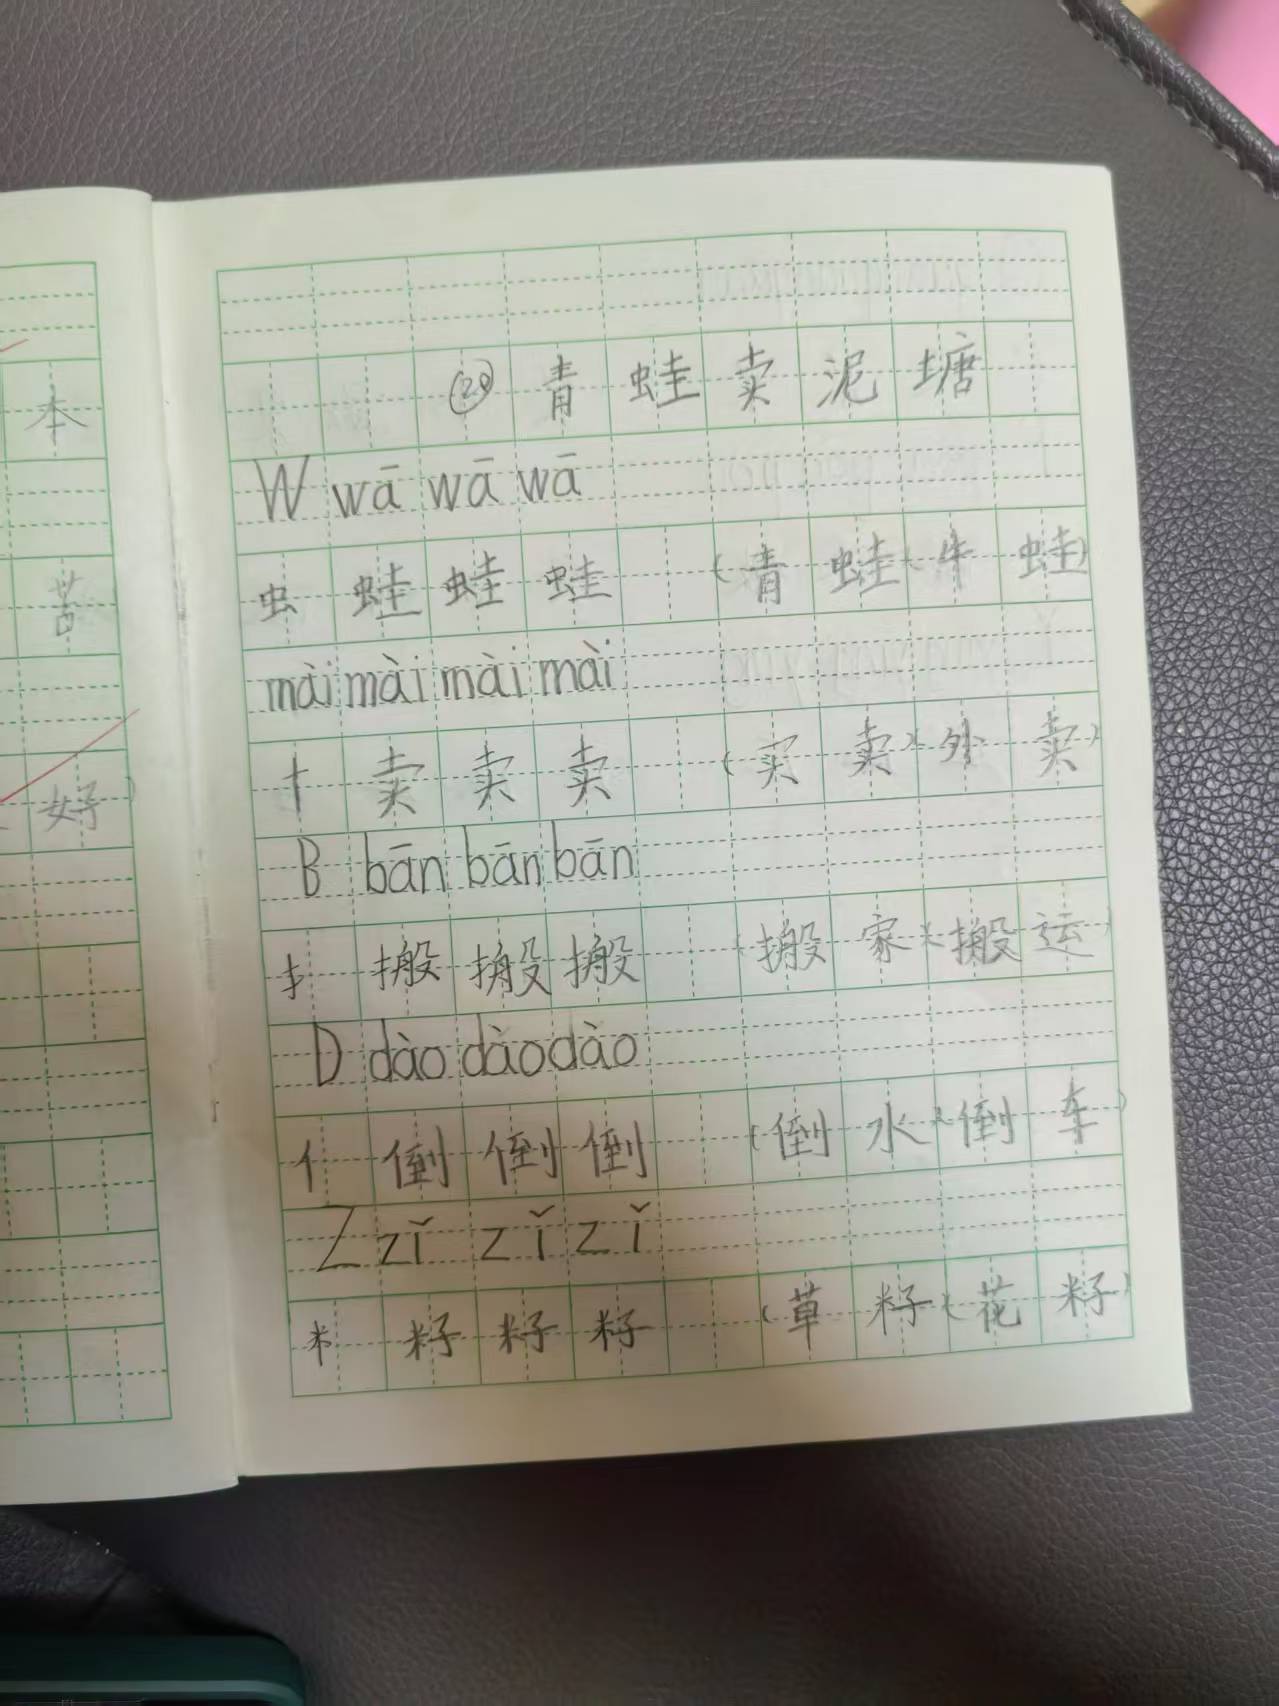 本
苦
好
㉑ 青蛙卖泥塘
W wā wā wā
虫 蛙 蛙 蛙 (青蛙)(牛蛙)
mài mài mài mài
十 卖 卖 卖 (买卖)(外卖)
B bān bān bān
扌 搬 搬 搬 (搬家)(搬运)
D dào dào dào
亻 倒 倒 倒 (倒水)(倒车)
Z zǐ zǐ zǐ
米 籽 籽 籽 (草籽)(花籽)